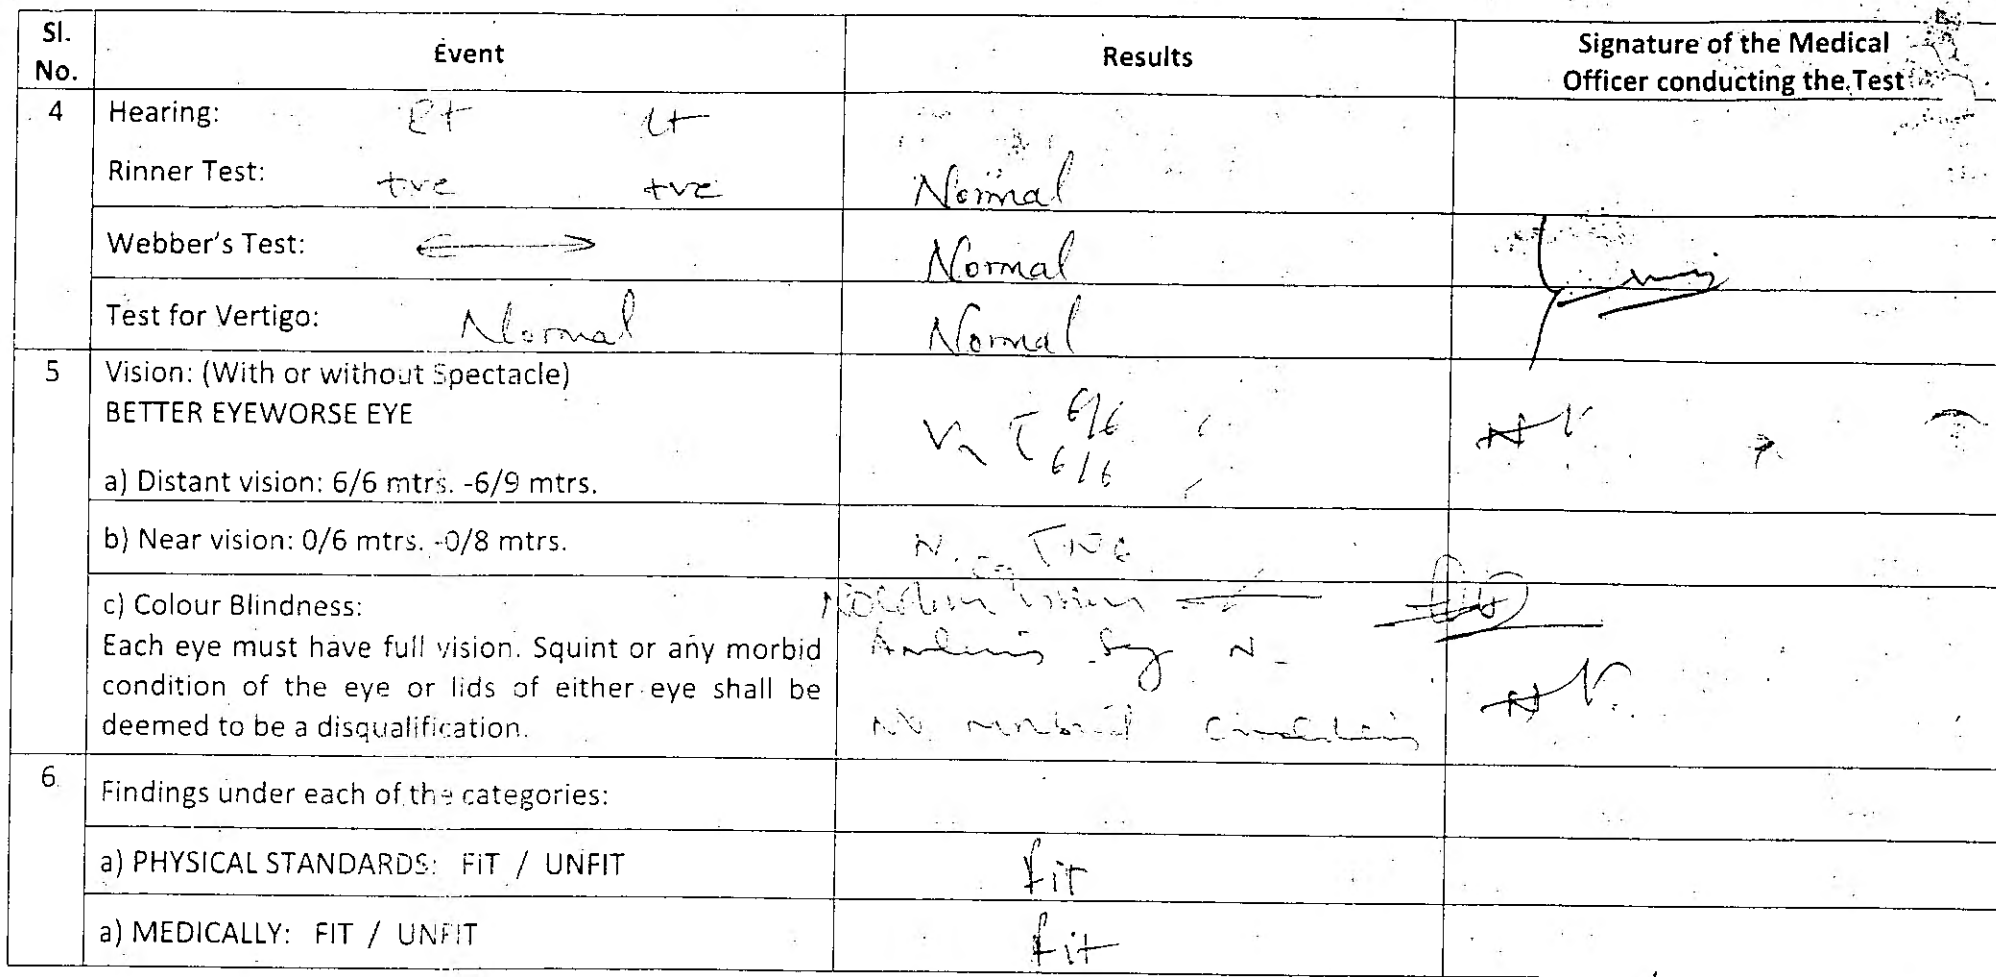 Sl. No. Event Results Signature of the Medical Officer conducting the Test
4 Hearing: Rt Lt
Rinner Test: +ve +ve Normal
Webber's Test: Normal
Test for Vertigo: Normal Normal
5 Vision: (With or without Spectacle)
BETTER EYEWORSE EYE
6/6
6/6
a) Distant vision: 6/6 mtrs. -6/9 mtrs.
b) Near vision: 0/6 mtrs. -0/8 mtrs.
c) Colour Blindness:
Each eye must have full vision. Squint or any morbid
condition of the eye or lids of either eye shall be
deemed to be a disqualification.
6. Findings under each of the categories:
a) PHYSICAL STANDARDS: FIT / UNFIT fit
a) MEDICALLY: FIT / UNFIT fit